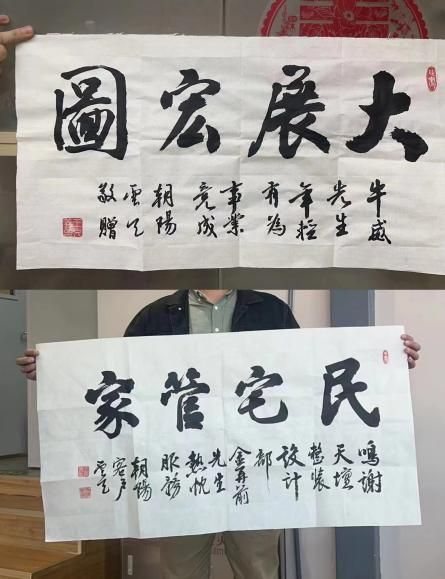 大展宏圖
牛威
先生
年轻
有為
事業
竟成
朝陽
敬贈
民宅管家
鳴谢
天壇
整装
設计
部
金再前
先生
熱忱
服務
朝陽
客户